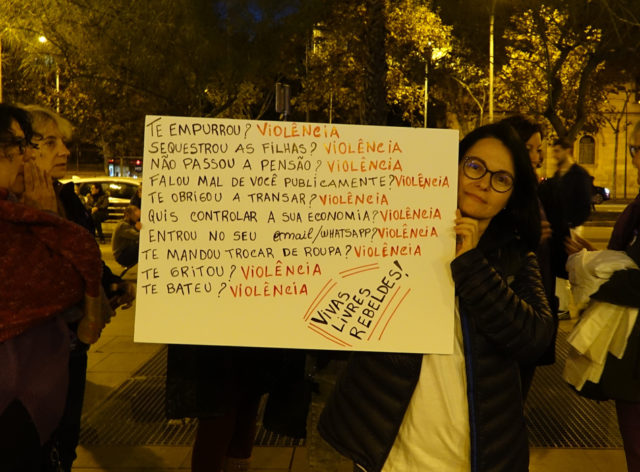 TE EMPURROU? VIOLÊNCIA
SEQUESTROU AS FILHAS? VIOLÊNCIA
NÃO PASSOU A PENSÃO? VIOLÊNCIA
FALOU MAL DE VOCÊ PUBLICAMENTE? VIOLÊNCIA
TE OBRIGOU A TRANSAR? VIOLÊNCIA
QUIS CONTROLAR A SUA ECONOMIA? VIOLÊNCIA
ENTROU NO SEU email/WHATSAPP? VIOLÊNCIA
TE MANDOU TROCAR DE ROUPA? VIOLÊNCIA
TE GRITOU? VIOLÊNCIA
TE BATEU? VIOLÊNCIA
VIVAS
LIVRES
REBELDES!